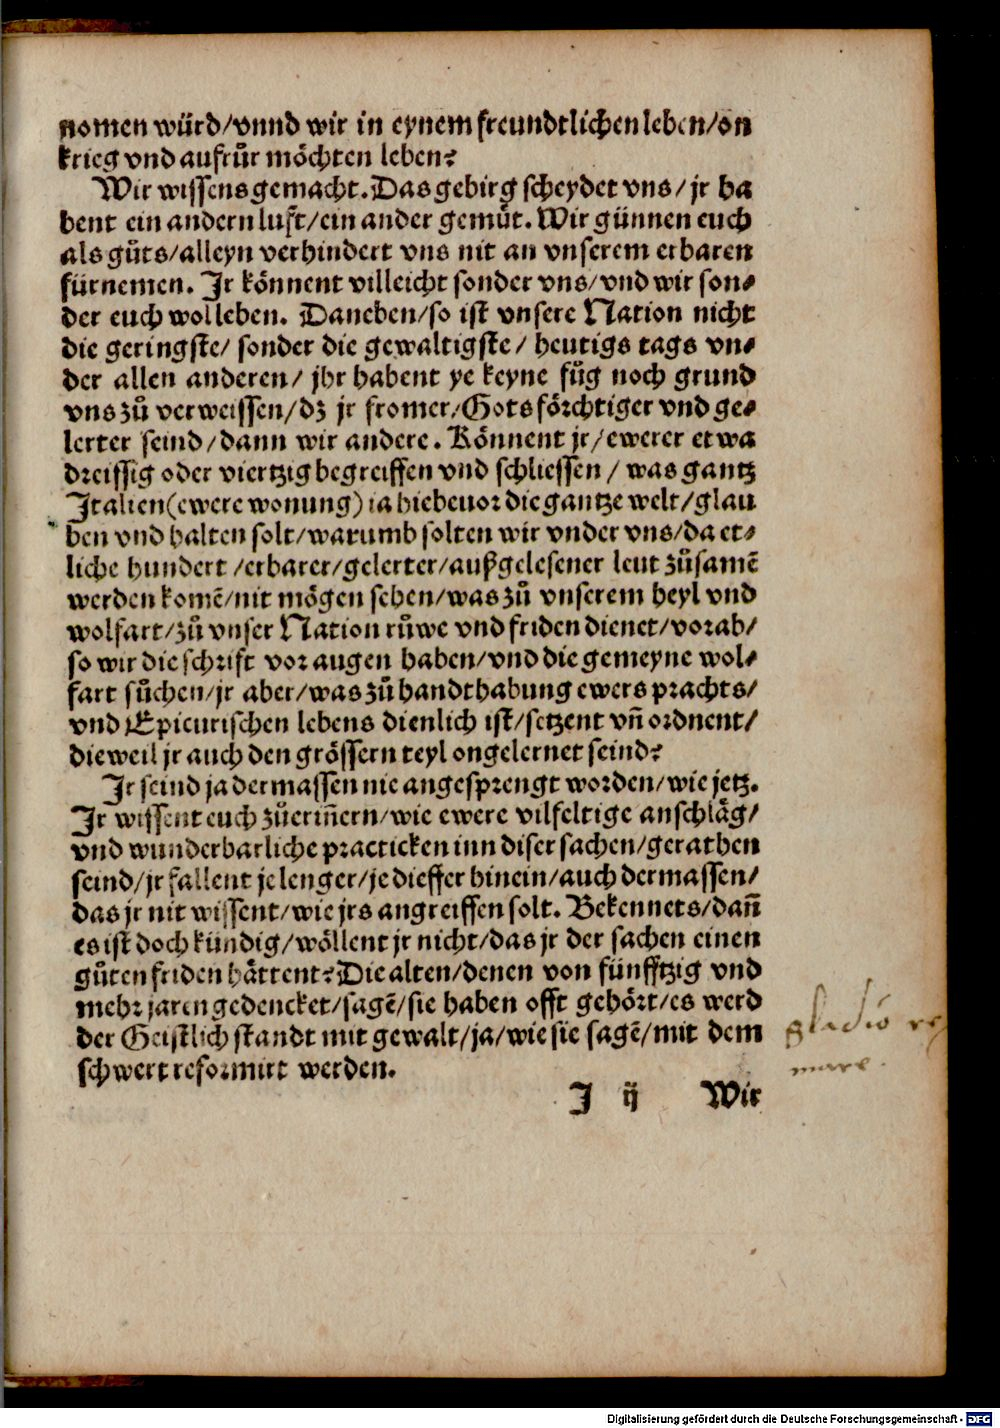 nomen würd/vnnd wir in eynem freundtlichen leben/on
krieg vnd aufrůr möchten leben?
Wir wissens gemacht. Das gebirg scheydet vns/jr ha
bent ein andern luft/ein ander gemůt. Wir günnen euch
als gůts/alleyn verhindert vns nit an vnserem erbaren
fürnemen. Ir könnent villeicht sonder vns/vnd wir son⸗
der euch wol leben. Daneben/so ist vnsere Nation nicht
die geringste/sonder die gewaltigste/heutigs tags vn⸗
der allen anderen/jhr habent ye keyne fůg noch grund
vns zů verweissen/dz jr fromer/Gotsförchtiger vnd ge⸗
lerter seind/dann wir andere. Könnent jr/ewerer etwa
dreissig oder viertzig begreiffen vnd schliessen/was gantz
Italien(ewere wonung)ia hieheuor die gantze welt/glau
ben vnd halten solt/warumb solten wir vnder vns/da et⸗
liche hundert/erbarer/gelerter/außgelesener leut zůsamē
werden komē/nit mögen sehen/was zů vnserem heyl vnd
wolfart/zů vnser Nation růwe vnd friden dienet/vorab/
so wir die schrift vor augen haben/vnd die gemeyne wol⸗
fart sůchen/jr aber/was zů handthabung ewers prachts/
vnd Epicurischen lebens dienlich ist/setzent vn̄ ordnent/
dieweil jr auch den grössern teyl ongelernet seind?
Ir seind ja dermassen nie angesprengt worden/wie jetz.
Ir wissent euch zůerin̄ern/wie ewere vilfeltige anschläg/
vnd wunderbarliche practicken inn diser sachen/gerathen
seind/jr fallent je lenger/je dieffer hinein/auch dermassen/
das jr nit wissent/wie jrs angreiffen solt. Bekennets/dan̄
es ist doch kündig/wöllent jr nicht/das jr der sachen einen
gůten friden hättent? Die alten/denen von fünfftzig vnd
mehr jaren gedencket/sagē/sie haben offt gehört/es werd
der Geistlich standt mit gewalt/ja/wie sie sagē/mit dem
schwert reformirt werden.
gladio
I ij Wir
Digitalisierung gefördert durch die Deutsche Forschungsgemeinschaft - DFG